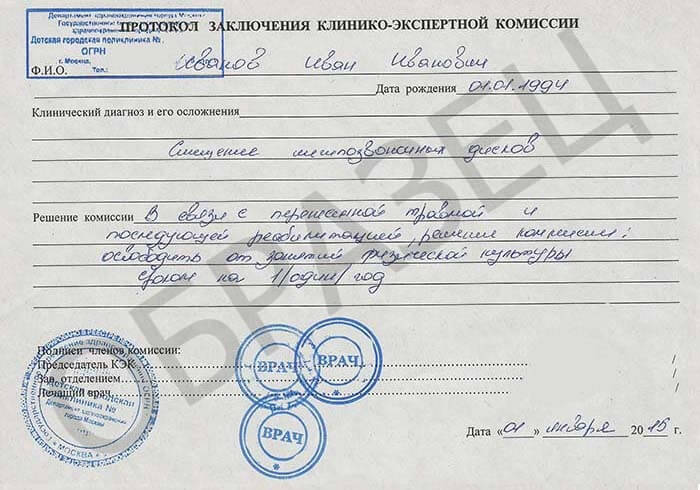 Департамент здравоохранения города Москвы
Государственное бюджетное
здравоохранения
Детская городская поликлиника №
ОГРН
г. Москва,
Тел.:
ПРОТОКОЛ ЗАКЛЮЧЕНИЯ КЛИНИКО-ЭКСПЕРТНОЙ КОМИССИИ
Ф.И.О. Иванов Иван Иванович
Дата рождения 01.01.1994
Клинический диагноз и его осложнения
Смещение межпозвоночных дисков
Решение комиссии В связи с перенесенной травмой и
последующей реабилитацией, решение комиссии:
освободить от занятий физической культуры
сроком на 1/один/ год
ОБРАЗЕЦ
Подписи членов комиссии:
Председатель КЭК /
Зав. отделением /
Лечащий врач /
ВРАЧ
ВРАЧ
ВРАЧ
Детская городская
поликлиника №
Департамент здравоохранения
города Москвы
МОСКВА
Дата «01» января 2015 г.